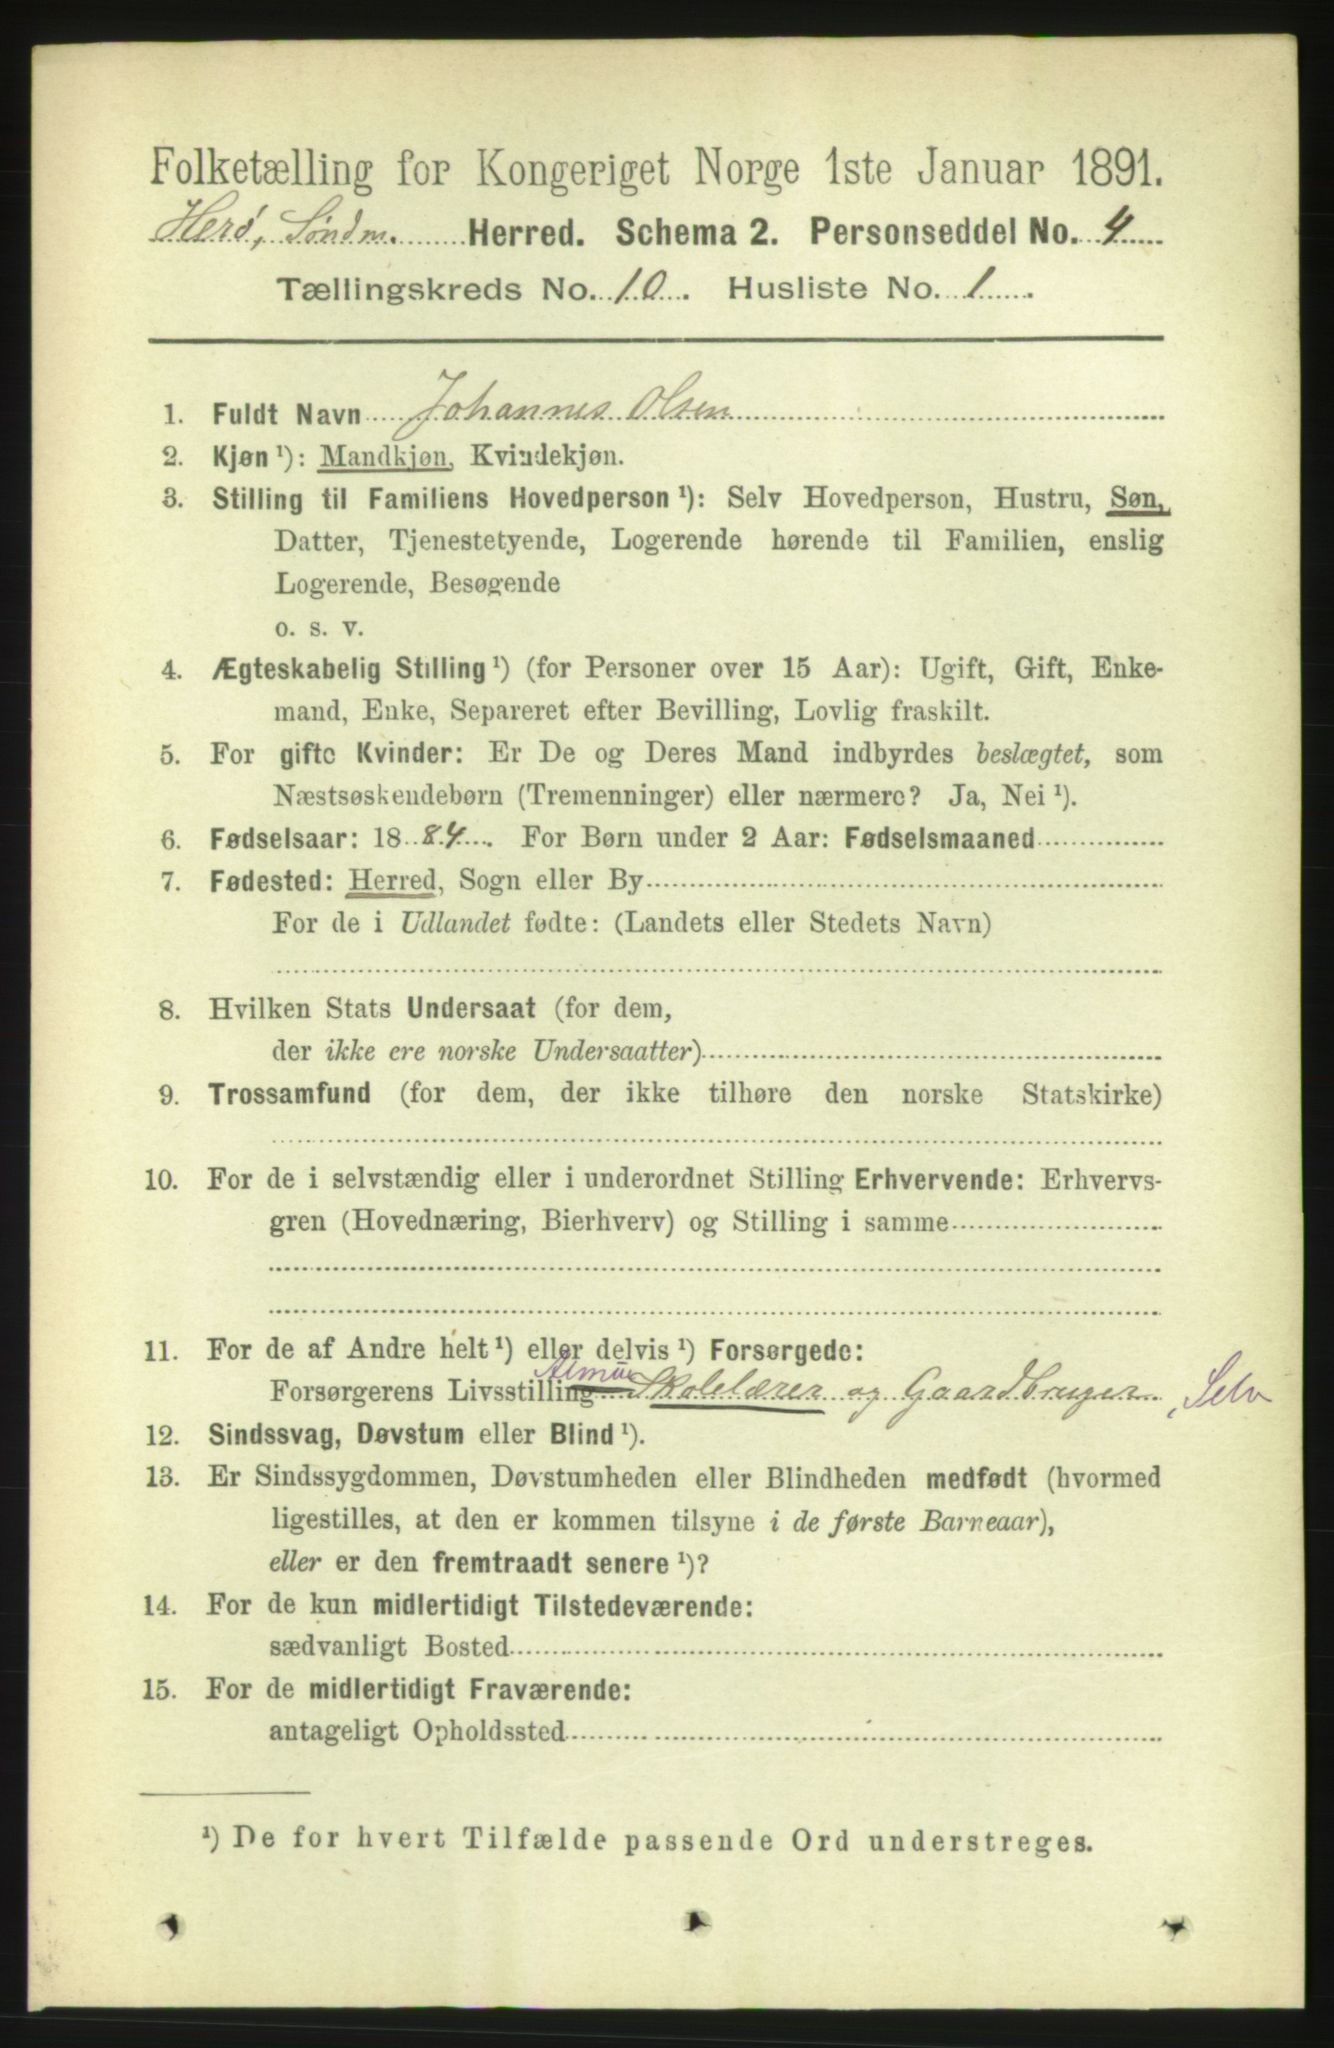 Folketælling for Kongeriget Norge 1ste Januar 1891.
Herø, Søndm. Herred. Schema 2. Personseddel No. 4
Tællingskreds No. 10. Husliste No. 1.
1. Fuldt Navn Johannes Olsen
2. Kjøn ¹): Mandkjøn, Kvindekjøn.
3. Stilling til Familiens Hovedperson ¹): Selv Hovedperson, Hustru, Søn,
Datter, Tjenestetyende, Logerende hørende til Familien, enslig
Logerende, Besøgende
o. s. v.
4. Ægteskabelig Stilling ¹) (for Personer over 15 Aar): Ugift, Gift, Enke-
mand, Enke, Separeret efter Bevilling, Lovlig fraskilt.
5. For gifte Kvinder: Er De og Deres Mand indbyrdes beslægtet, som
Næstsøskendebørn (Tremenninger) eller nærmere? Ja, Nei ¹).
6. Fødselsaar: 1884. For Børn under 2 Aar: Fødselsmaaned
7. Fødested: Herred, Sogn eller By
For de i Udlandet fødte: (Landets eller Stedets Navn)
8. Hvilken Stats Undersaat (for dem,
der ikke ere norske Undersaatter)
9. Trossamfund (for dem, der ikke tilhøre den norske Statskirke)
10. For de i selvstændig eller i underordnet Stilling Erhvervende: Erhvervs-
gren (Hovednæring, Bierhverv) og Stilling i samme
11. For de af Andre helt ¹) eller delvis ¹) Forsørgede:
Forsørgerens Livsstilling Almue Skolelærer og Gaardbruger, Selv
12. Sindssvag, Døvstum eller Blind ¹).
13. Er Sindssygdommen, Døvstumheden eller Blindheden medfødt (hvormed
ligestilles, at den er kommen tilsyne i de første Barneaar),
eller er den fremtraadt senere ¹)?
14. For de kun midlertidigt Tilstedeværende:
sædvanligt Bosted
15. For de midlertidigt Fraværende:
antageligt Opholdssted
¹) De for hvert Tilfælde passende Ord understreges.